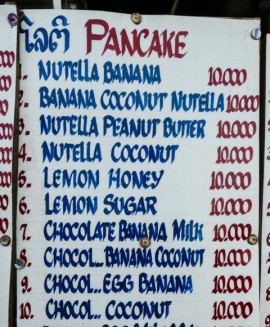 ໂລຕີ PANCAKE
1. NUTELLA BANANA 10.000
2. BANANA COCONUT NUTELLA 10.000
3. NUTELLA PEANUT BUTTER 10.000
4. NUTELLA COCONUT 10.000
5. LEMON HONEY 10.000
6. LEMON SUGAR 10.000
7. CHOCOLATE BANANA MILK 10.000
8. CHOCOL... BANANA COCONUT 10.000
9. CHOCOL.. EGG BANANA 10.000
10. CHOCOL.. COCONUT 10.000